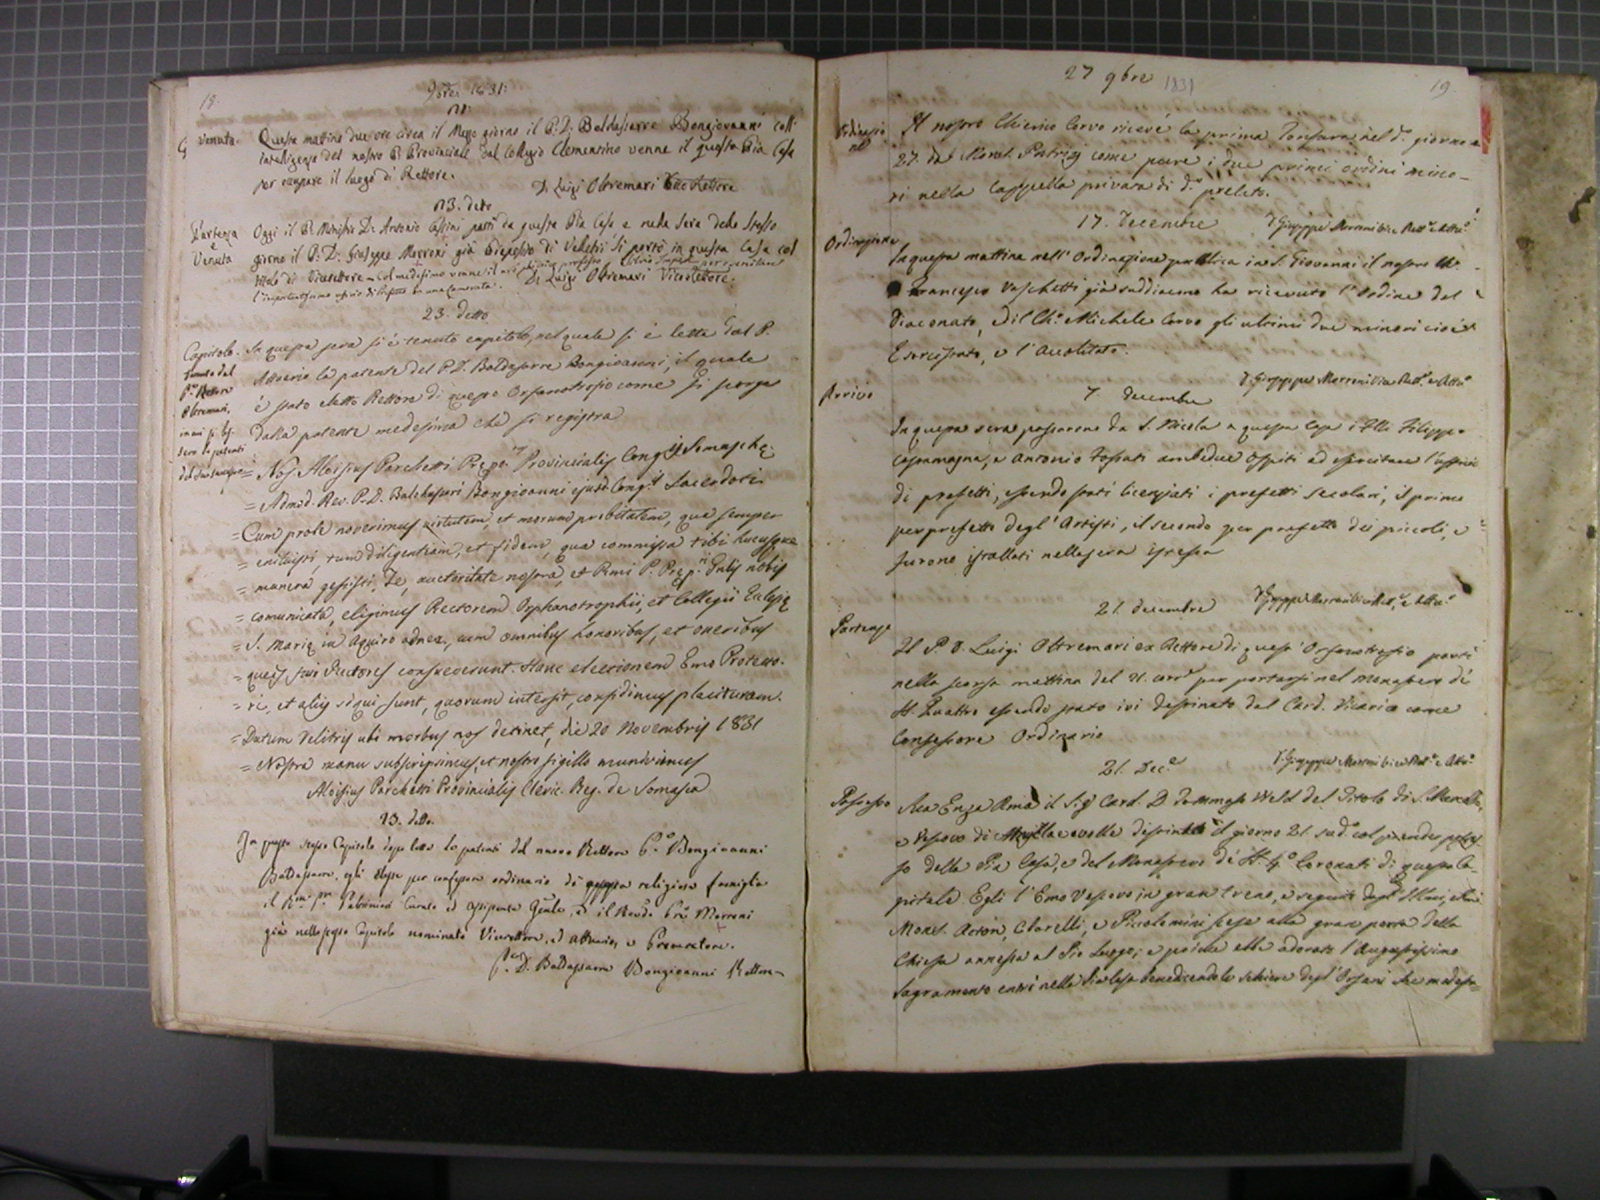 18.
9bre. 1831.
21.
venuta. Questa mattina due ore circa il Mezzo giorno il P. D. Baldassarre Bongiovanni coll'
intelligenza del nostro P. Provinciale dal Collegio Clementino venne in questa Pia Casa
per occupare il luogo di Rettore.
D. Luigi Oltremari Vice Rettore
23. detto
Partenza e Venuta
Oggi il P. Ministro D. Antonio Cassini partì da questa Pia Casa e nella sera dello stesso
giorno il P. D. Giuseppe Marroni già Preposito di Velletri si portò in questa Casa col
titolo di Vicerettore - Col medesimo venne il
l'importantissimo ufficio di Prefetto in una Camerata.
D. Luigi Oltremari Vicerettore.
23. detto
Capitolo tenuto dal P. Rettore Oltremari, in cui si lessero le patenti del suo successore
In questa sera si è tenuto capitolo, nel quale si è letta dal P.
Attuario la patente del P. D. Baldassarre Bongiovanni, il quale
è stato eletto Rettore di questo Orfanotrofio come si scorge
dalla patente medesima che si registra
= Nos Aloisius Parchetti Prep. Provincialis Cong. Somaschę
= Admod. Rev. P. D. Balthassari Bongioanni ejusd. Cong. Sacerdoti
= Cum probe noverimus virtutem, et morum probitatem, qua semper
= enituisti, tum diligentiam, et fidem, qua commissa tibi hucusque
= munera gessisti, Te, auctoritate nostra et Rmi P. Prep. Gnlis nobis
= comunicata, eligimus Rectorem Orphanotrophii, et Collegii Ecclesię
= S. Marię in Aquiro adnex, cum omnibus honoribus, et oneribus
= queis sui Rectores consueverunt. Hanc electionem Emo Protecto-
= ri, et aliis siqui sunt, quorum intersit, confidimus placituram.
= Datum Velitris ubi morbus nos detinet, die 20 Novembris 1831
= Nostra manu subscripsimus, et nostro sigillo munivimus
Aloisius Parchetti Provincialis Cleric. Reg. de Somasca
23. detto.
In questo stesso Capitolo dopo lette le patenti del nuovo Rettore P. Bongiovanni
Baldassarre, egli elesse per confessore ordinario di questa religiosa famiglia
il Rmo Pre Paltrinieri Curato ed Assistente Gnle, ed il Revdo Pre Marroni
già nello stesso Capitolo nominato Vicerettore, ed Attuario, e Procuratore.
D. Baldassarre Bongioanni Rettore
27 9bre 1831
19
Ordinazione
Il nostro Chierico Corvo ricevé la prima Tonsura nel dº giorno
27. da Monsr. Patrizj come pure i due primi ordini mino-
ri nella Cappella privata di dº prelato.
17. Decembre D. Giuseppe Marroni Vice Rett.e e Att.o
Ordinazione
In questa mattina nell'Ordinazione pubblica in S. Giovanni il nostro
Francesco Vaschetti già suddiacono ha ricevuto l'Ordine del
Diaconato, ed il Ch.o Michele Corvo gli ultimi due minori cioè
Esorcistato, e l'Accolitato.
D. Giuseppe Marroni Vice Rett.e e Att.o
7 decembre
Arrivo
In questa sera passarono da S. Nicola a questa Casa i Flli Filippo
Casamagna, e Antonio Fossati ambedue Ospiti ad esercitare l'uffizio
di prefetti, essendo stati licenziati i prefetti secolari, il primo
per prefetto degl'Artisti, il secondo per prefetto dei piccoli, e
furono istallati nella sera istessa
D. Giuseppe Marroni Vice Rett.e e Att.o
21. decembre
Partenza
Il P. D. Luigi Oltremari ex Rettore di quest'Orfanotrofio partì
nella scorsa mattina del 21. corr.e per portarsi nel Monastero dé
SS. Quattro essendo stato ivi destinato dal Card. Vicario come
Confessore Ordinario
21. Dec.e D. Giuseppe Marroni Vice Rett.e e Att.o
Possesso
Sua Enza Rma il Sigr Card. D. Tommaso Weld del Titolo di S. Marcello,
e Vescovo di Amycla volle destinare il giorno 21. sud.o col prender posses-
so della Pia Casa, e del Monastero dé SS. 4.o Coronati di questa Ca-
pitale. Egli l'Emo Vescovo in gran treno, e seguito degl'Illmi, e Rmi
Monsr. Acton, Clarelli, e Piccolomini scese alla gran porta della
Chiesa annessa al Pio Luogo; e poiché ebbe adorato l'Augustissimo
Sagramento entrò nella Pia Casa benedicendo le schiere degl'Orfani che modesta-